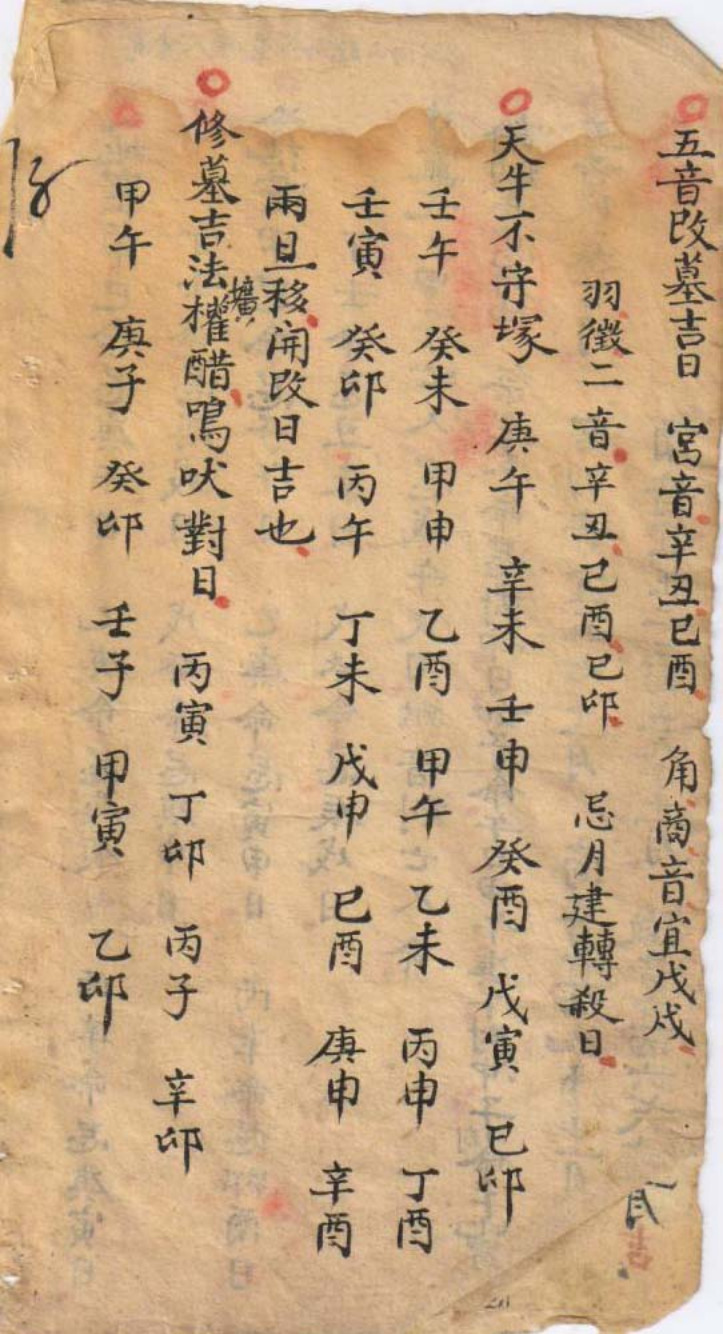 五音改墓吉日 宮音辛丑己酉 角商音宜戊戍 月吉
羽徵二音辛丑己酉己卯 忌月建轉殺日
天牛不守塚 庚午 辛未 壬申 癸酉 戊寅 己卯
壬午 癸未 甲申 乙酉 甲午 乙未 丙申 丁酉
壬寅 癸卯 丙午 丁未 戊申 己酉 庚申 辛酉
兩旦移開改日吉也
壙
修墓吉法權醋鳴吠對日 丙寅 丁卯 丙子 辛卯
甲午 庚子 癸卯 壬子 甲寅 乙卯